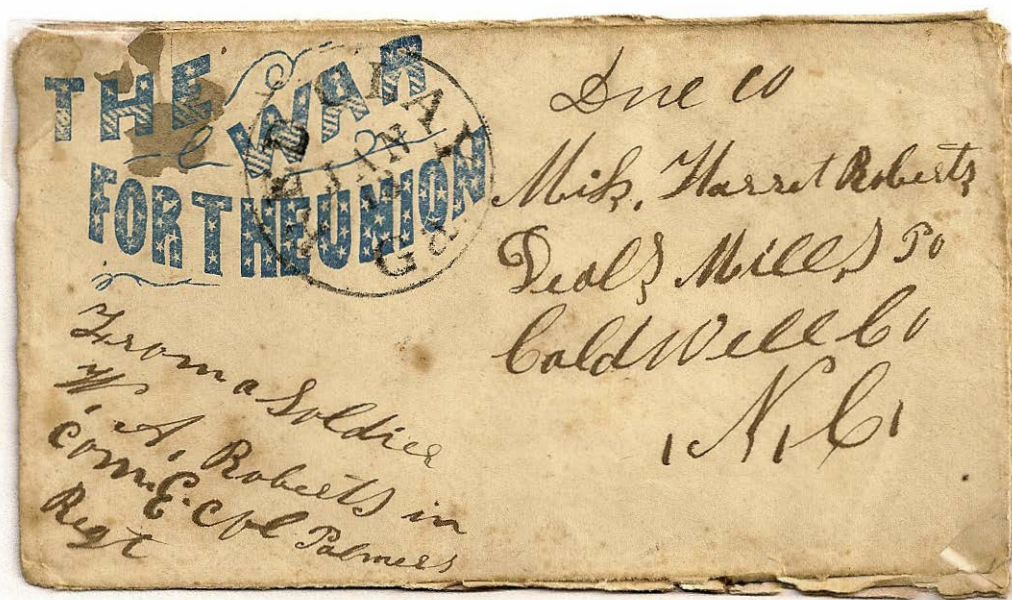 THE WAR
FOR THE UNION
JAN
Ga
Due 10
Miss. Harret Roberts
Deals Mills Po
CaldWell Co
N. C.
From a Soldier
W. A. Roberts in
Com. E. Col Palmers
Regt